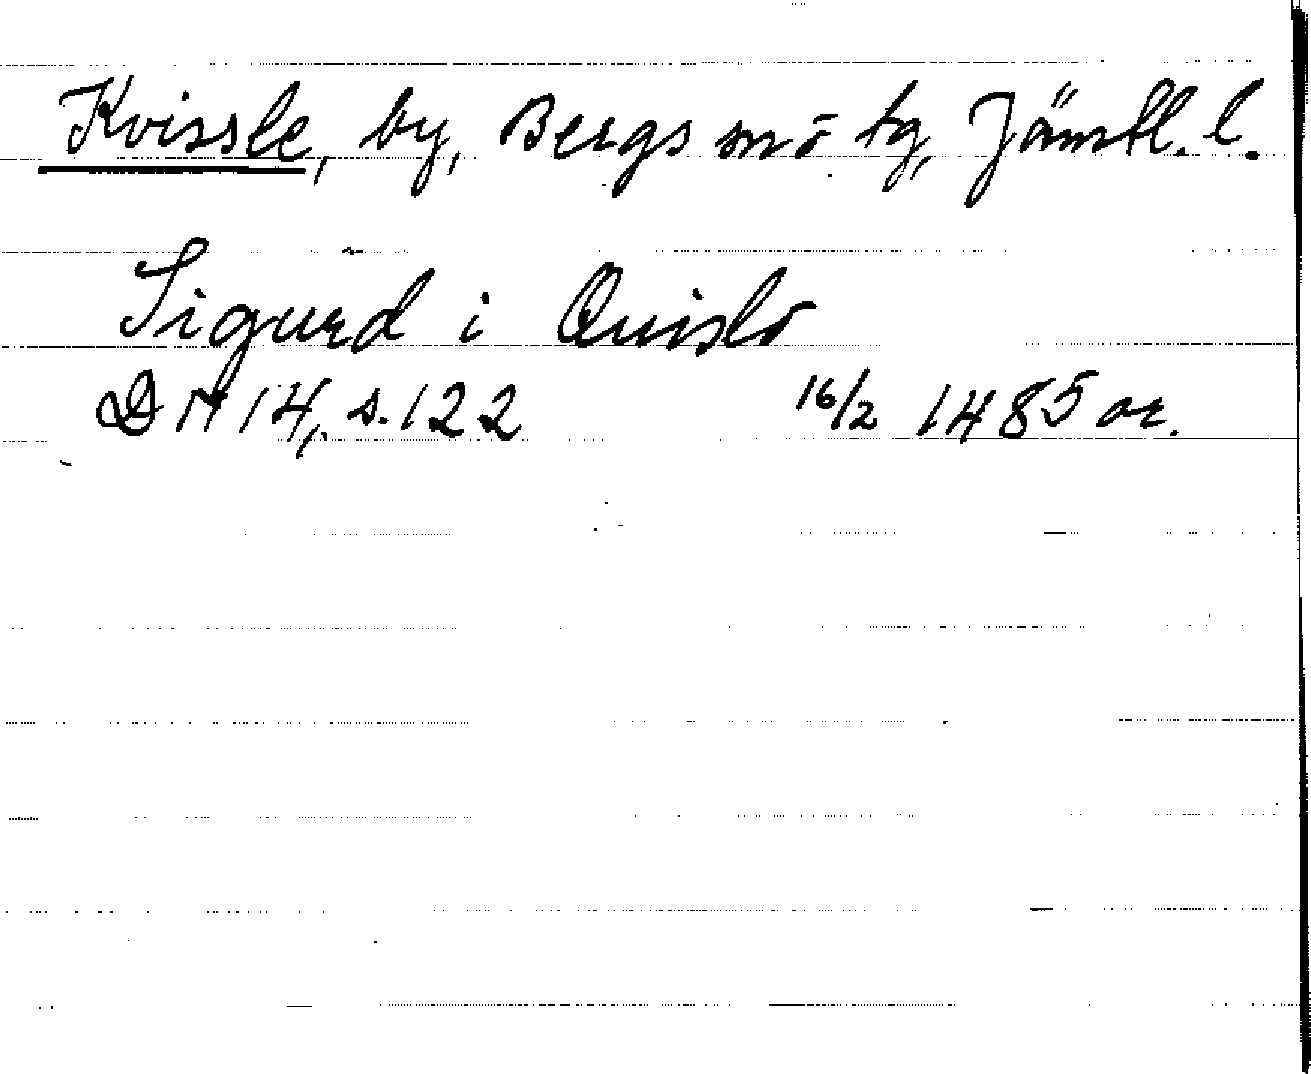 Kvissle, by, Bergs sn o tg, Jämtl. l.
Sigurd i Quislo
DN 14, s. 122 16/2 1485 or.